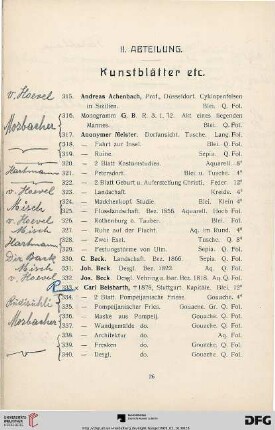 II. ABTEILUNG.
Kunstblätter etc.
v. Hoevel
315. Andreas Achenbach, Prof., Düsseldorf. Cyklopenfelsen
in Sizilien. Blei. Q. Fol.
316. Monogramm G. B. R. S. I. 12. Akt eines liegenden
Mannes. Blei. Q. Fol.
Mosbacher
317. Anonymer Meister. Dorfansicht. Tusche. Lang. Fol.
318. — Fahrt zur Insel. Blei. Q. Fol.
319. — Ruine. Sepia. Q. Fol.
320. — 2 Blatt Kostümstudien. Aquarell. 8°
Hartmann
321. — Petersdorf. Blei u. Tusche. 4°
322. — 2 Blatt Geburt u. Auferstehung Christi. Feder. 12°
v. Hoevel
323. — Landschaft. Kreide. 4°
324. — Mädchenkopf. Studie. Blei. Klein 4°
Misch
325. — Flusslandschaft. Bez. 1856. Aquarell. Hoch Fol.
v. Hoevel
326. — Rothenburg a. Tauber. Blei. Fol.
Misch
327. — Ruhe auf der Flucht. Aq. im Rund. 4°
Hartmann
328. — Zwei Esel. Tusche. Q. 8°
329. — Festungstürme von Ulm. Sepia. Q. Fol.
330. C. Beck. Landschaft. Bez. 1860. Q. Fol.
Misch
331. Joh. Beck. Desgl. Bez. 1822. Aq. Q. Fol.
v. Hoevel
332. Joh. Beck
333. Carl Beisbarth, † 1878, Stuttgart. Kapitäle. Blei. 12°
334. — 2 Blatt. Pompejanische Friese. Gouache. 4°
335. — Pompejanischer Fries. Gouache. Gr. Q. Fol.
Mosbacher
336. — Maske aus Pompeji. Gouache. Q. Fol.
337. — Wandgemälde do. Gouache. Q. Fol.
338. — Architektur do. Aq. Q. Fol.
339. — Fresken do. Gouache. Q. Fol.
340. — Desgl. do. Gouache. Q. Fol.
26
UNIVERSITÄTS-BIBLIOTHEK HEIDELBERG
DFG